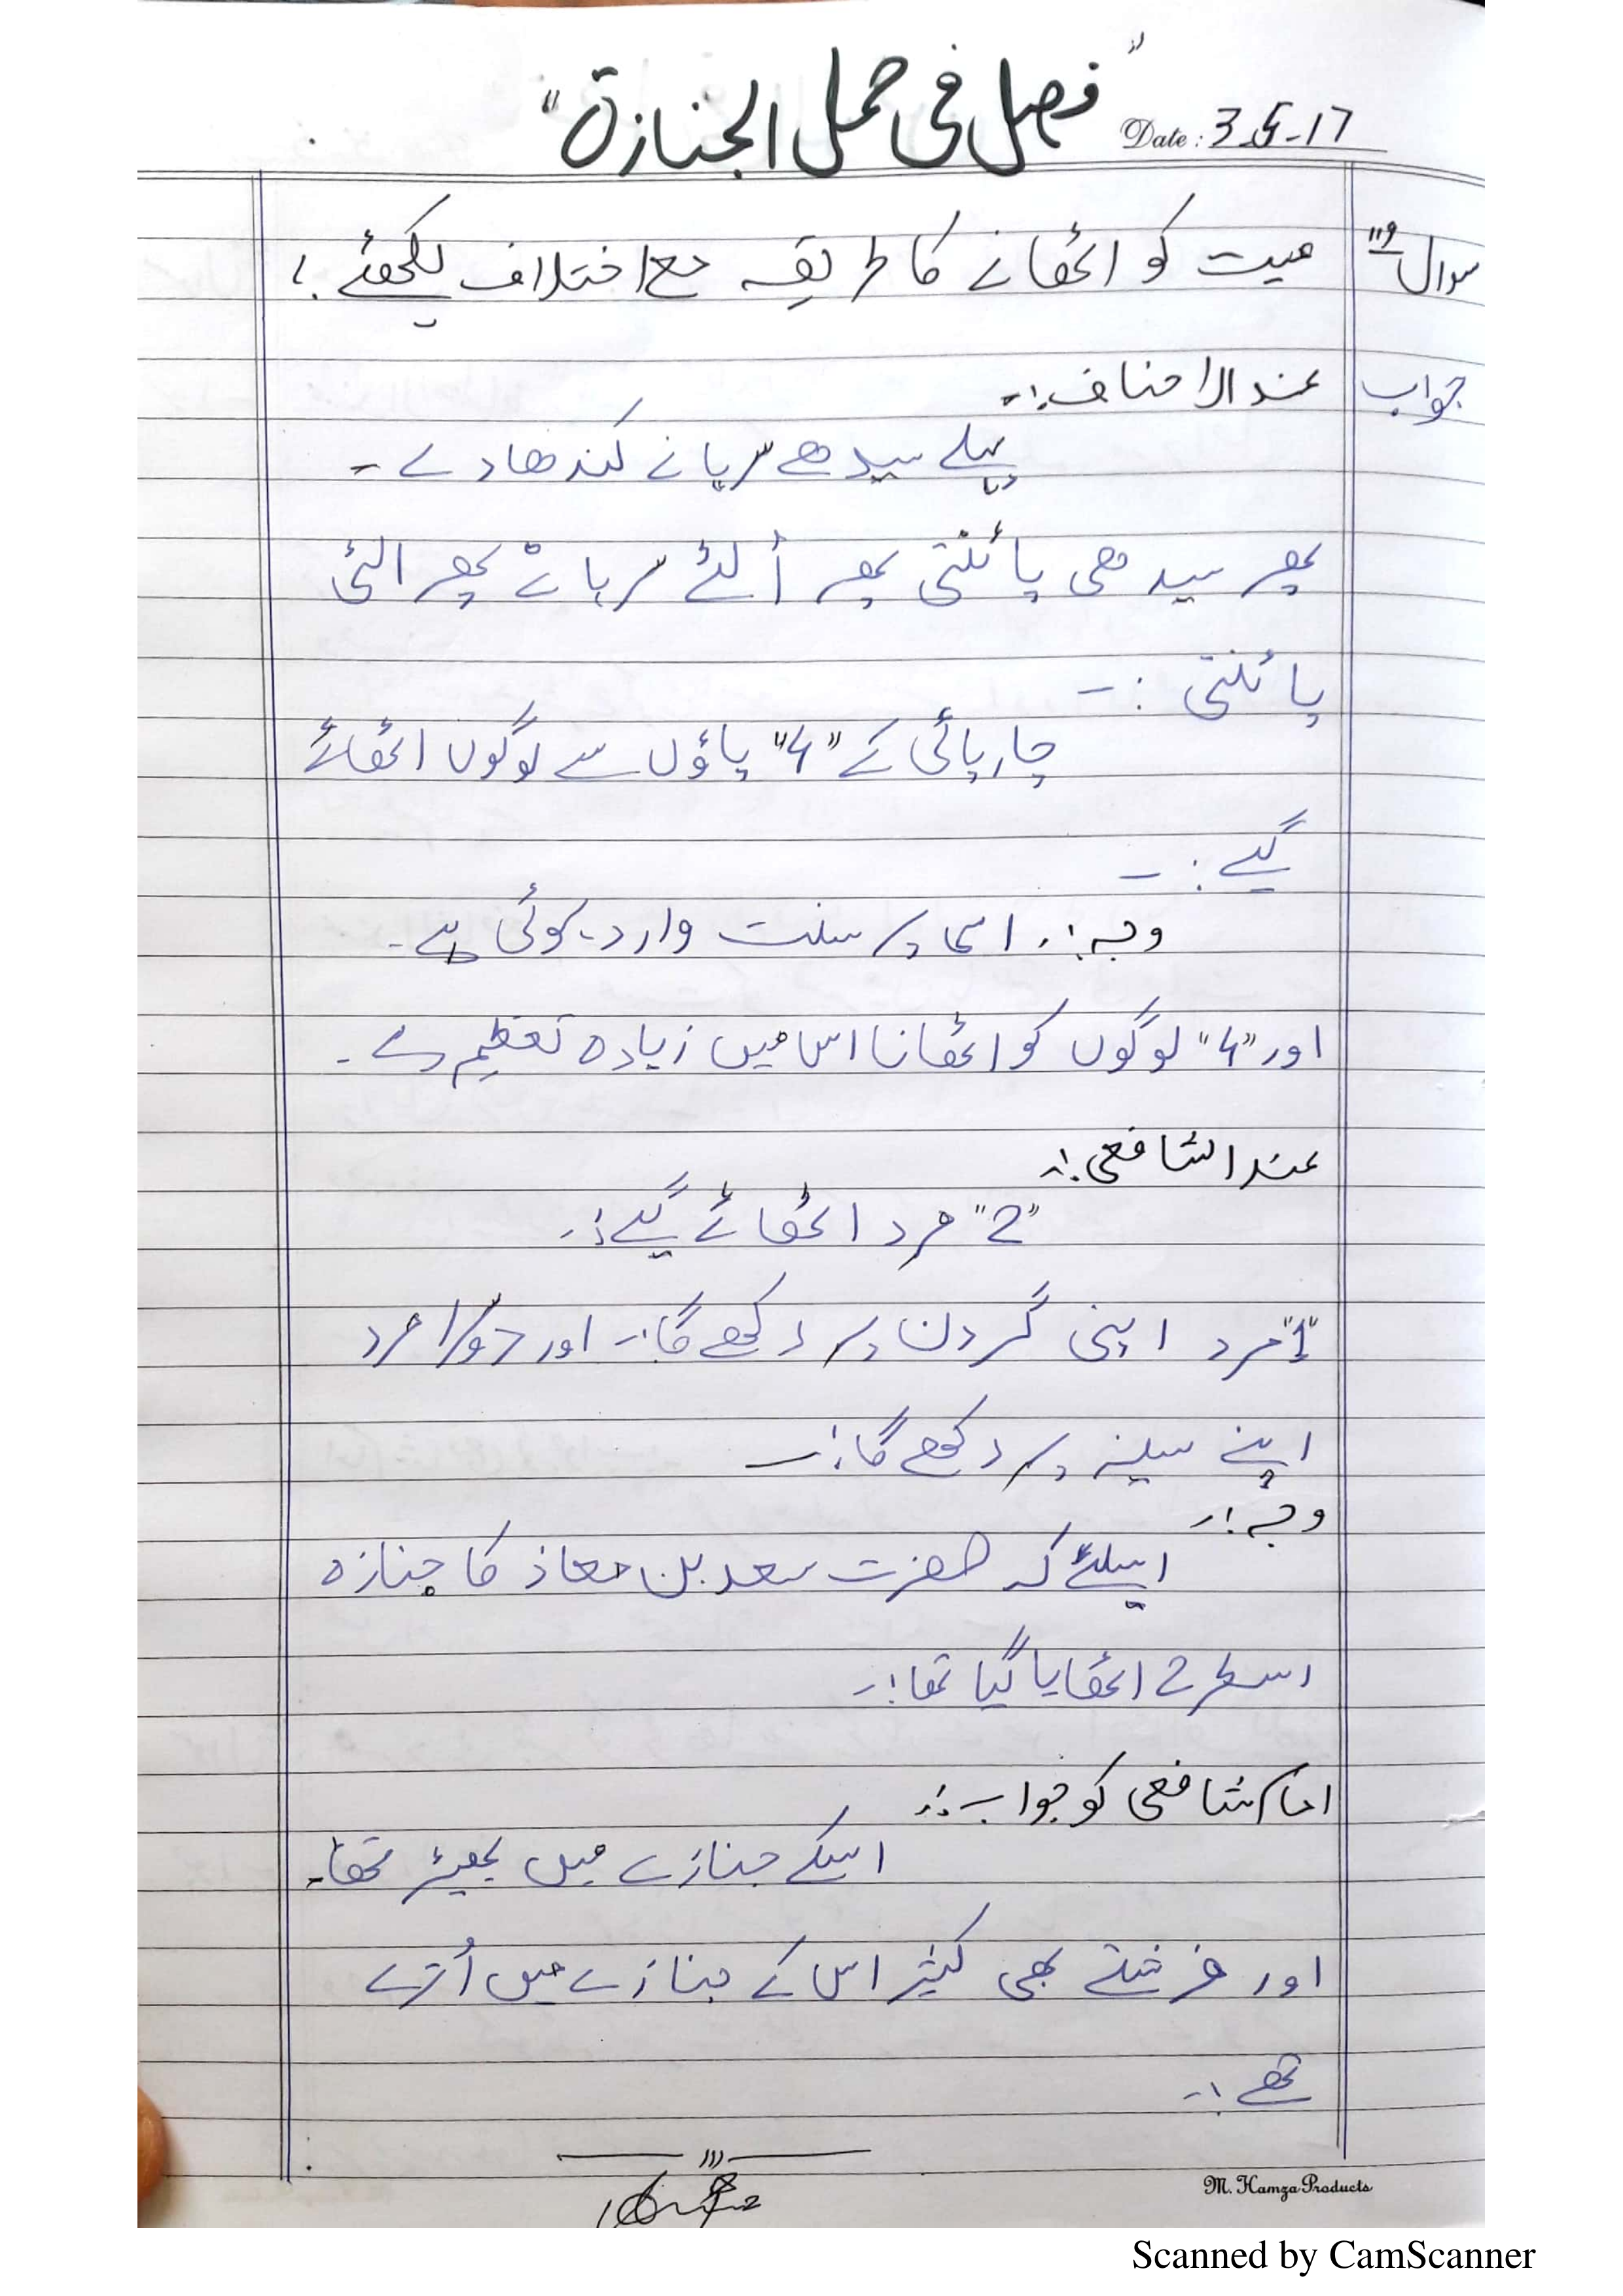 "فصل فی حمل الجنازۃ"
Date: 3-5-17
سوال "9" میت کو اٹھانے کا طریقہ مع اختلاف لکھئے؟
جواب عند الاحناف:۔
پہلے سیدھے سرہانے کندھا دے۔
پھر سیدھی پائنتی پھر اُلٹے سرہانے پھر الٹی
پائنتی :۔
چارپائی کے "4" پاؤں سے لوگوں اٹھائے
گے :۔
وجہ:۔ اسی پر سنت وارد ہوئی ہے۔
اور "4" لوگوں کو اٹھانا اس میں زیادہ تعظیم ہے۔
عند الشافعی:۔
"2" مرد اٹھائے گے:۔
"1" مرد اپنی گردن پر رکھے گا:۔ اور دوسرا مرد
اپنے سینہ پر رکھے گا:۔
وجہ:۔
اسلئے کہ حضرت سعد بن معاذ کا جنازہ
اسطرح اٹھایا گیا تھا:۔
امام شافعی کو جواب:۔
اسکے جنازے میں بھیڑ تھا۔
اور فرشتے بھی کثیر اس کے جنازے میں اُترے
تھے:۔
M. Hamza Products
Scanned by CamScanner